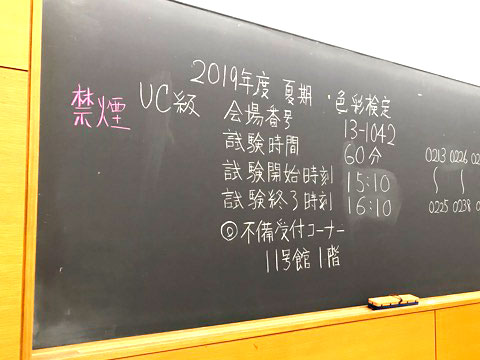 2019年度 夏期・色彩検定
禁煙
UC級
会場番号 13-1042
試験時間 60分
試験開始時刻 15:10
試験終了時刻 16:10
◎不備受付コーナー
11号館 1階
0213 0226 02
〜 〜
0225 0238 0